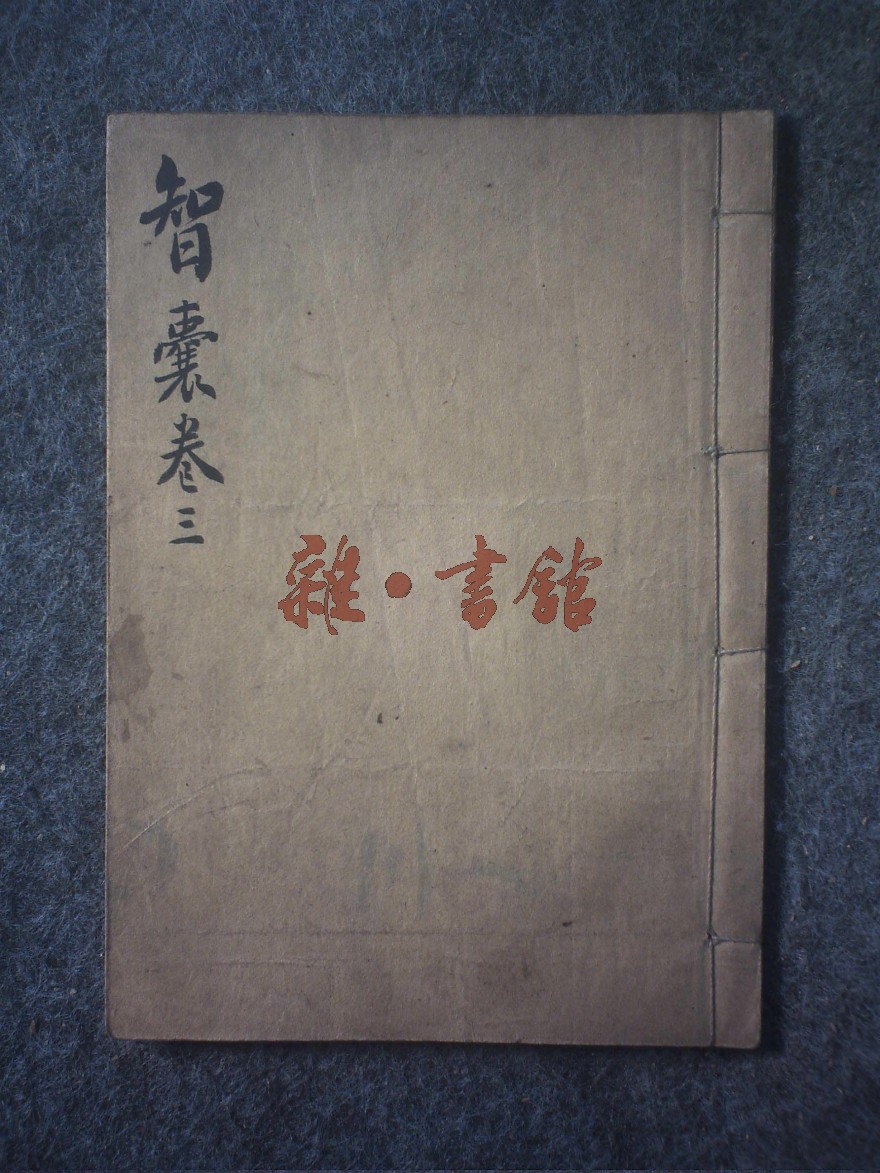 智囊卷三
雜•書館